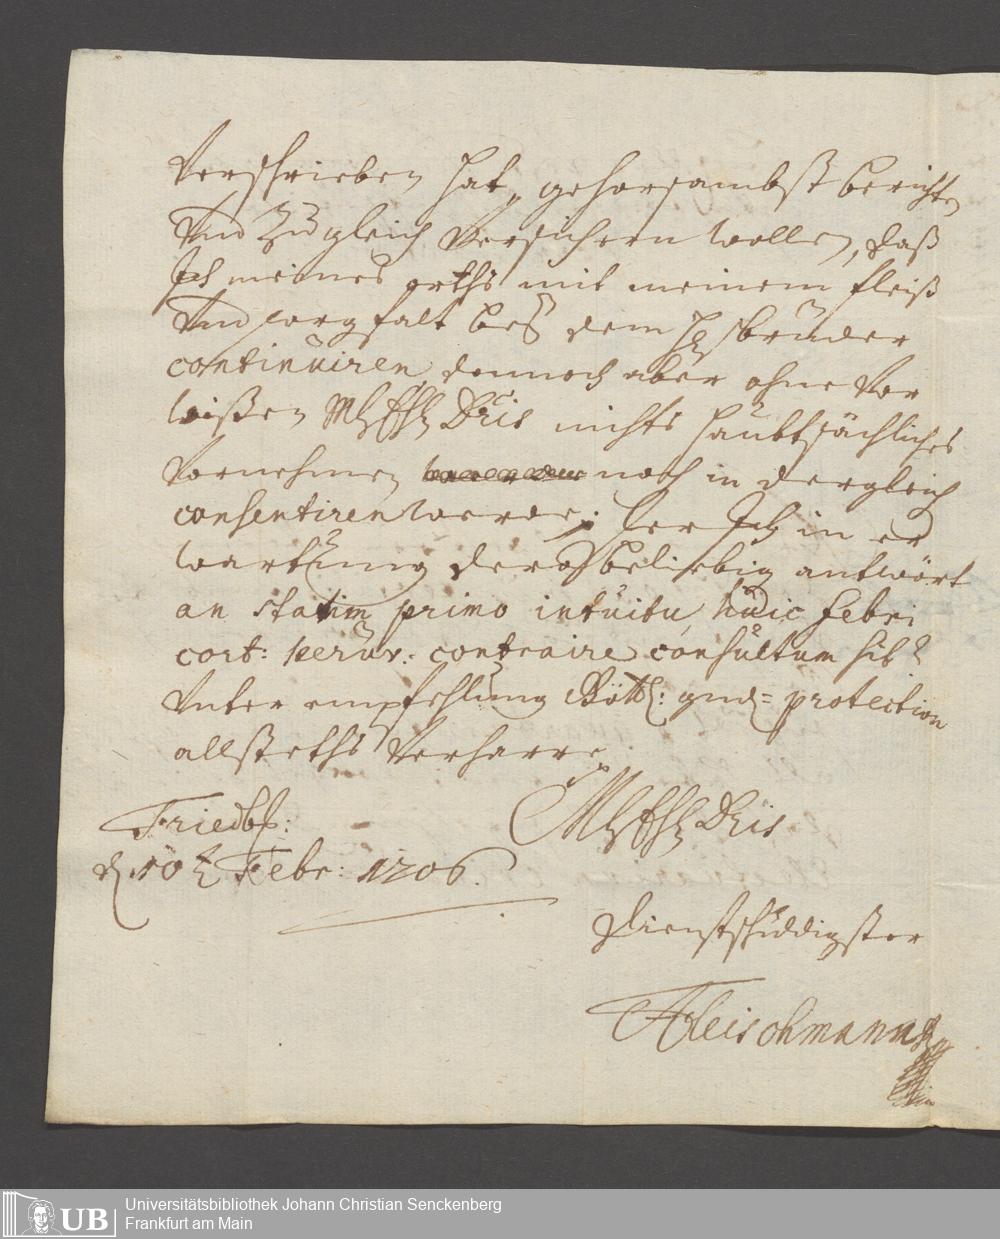 Verschrieben hat, gehorsambst berichten
Und Zugleich Versichern wollen, daß
Ich meines orths mit meinem fleiß
Und sorgfalt bey dem
continuiren, dennoch aber ohne Vor
wißen nichts haubtsächliches
Vornehmen noch in dergleich
consentiren werde; Der Ich in er
wartung dero beliebig antwort
an statim primo intuitu, huic febri
cort: peruv: contraire consultum sit?
Unter empfehlung Göttl: gnd= protection
allsteths Verharre
Friedb:
d. 10t Febr: 1706.
Dienstschuldigster
Fleischmann
UB
Universitätsbibliothek Johann Christian Senckenberg
Frankfurt am Main